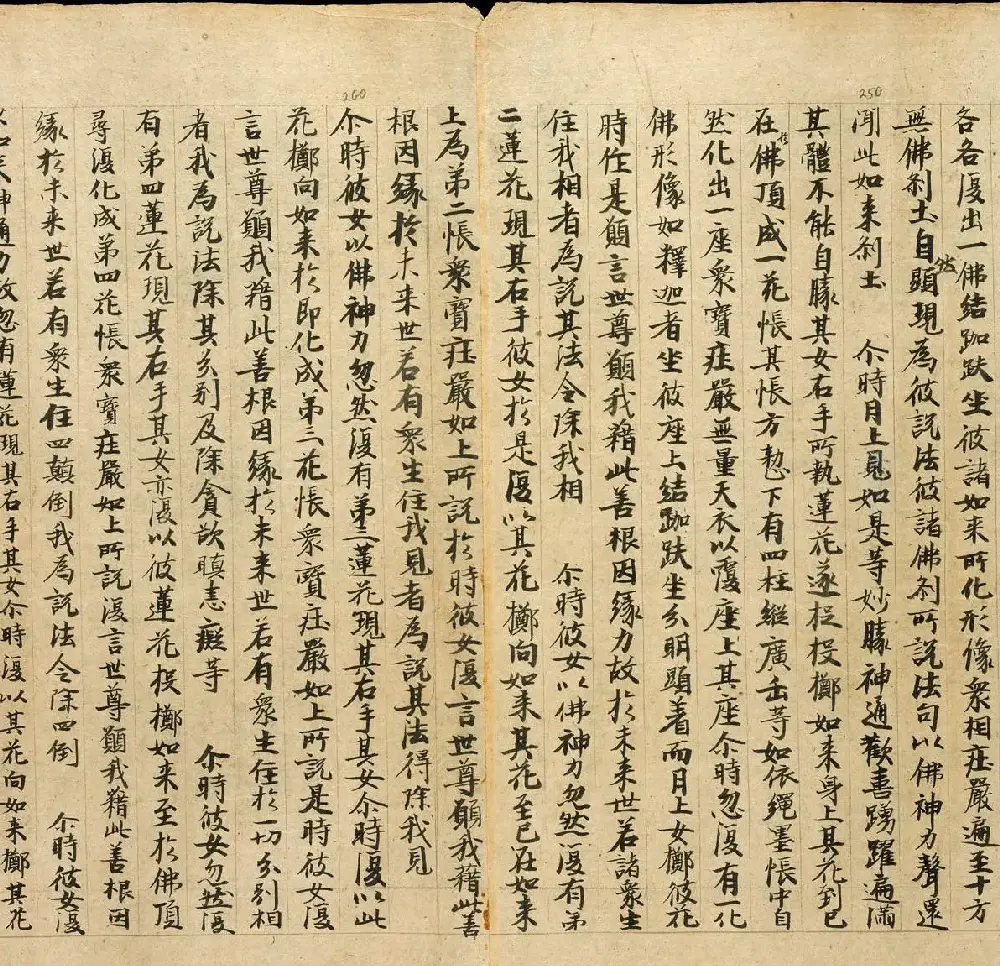 各各復出一佛結跏趺坐彼諸如来所化形像衆相莊嚴遍至十方
無佛刹土自然顯現為彼説法彼諸佛刹所説法句以佛神力聲還
聞此如来刹土 尒時月上見如是等妙勝神通歡喜踴躍遍滿
其體不能自勝其女右手所執蓮花遂捉投擲如来身上其花到已
在佛頂成一花帳其帳方懃下有四柱縱廣正等如依繩墨帳中自
然化出一座衆寶莊嚴無量天衣以覆座上其座尒時忽復有一化
佛形像如釋迦者坐彼座上結跏趺坐分明顯着而月上女擲彼花
時作是願言世尊願我藉此善根因緣力故於未来世若諸衆生
住我相者為説其法令除我相 尒時彼女以佛神力忽然復有第
二蓮花現其右手彼女於是復以其花擲向如来其花至已在如来
上為第二帳衆寶莊嚴如上所説於時彼女復言世尊願我藉此善
根因緣於未来世若有衆生住我見者為説其法得除我見
尒時彼女以佛神力忽然復有第三蓮花現其右手其女尒時復以此
花擲向如来於即化成第三花帳衆寶莊嚴如上所説是時彼女復
言世尊願我藉此善根因緣於未来世若有衆生住於一切分別相
者我為説法除其分別及除貪欲瞋恚癡等 尒時彼女忽然復
有第四蓮花現其右手其女亦復以彼蓮花投擲如来至於佛頂
尋復化成第四花帳衆寶莊嚴如上所説復言世尊願我藉此善根因
緣於未来世若有衆生住四顛倒我為説法令除四倒 尒時彼女復
神通力故忽有蓮花現其右手其女尒時復以其花向如来擲其花
250
260